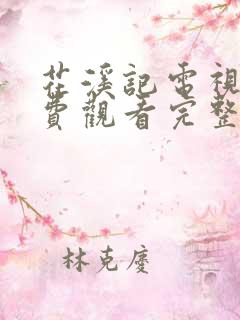 茌溪記電視
費觀看完整
林克慶